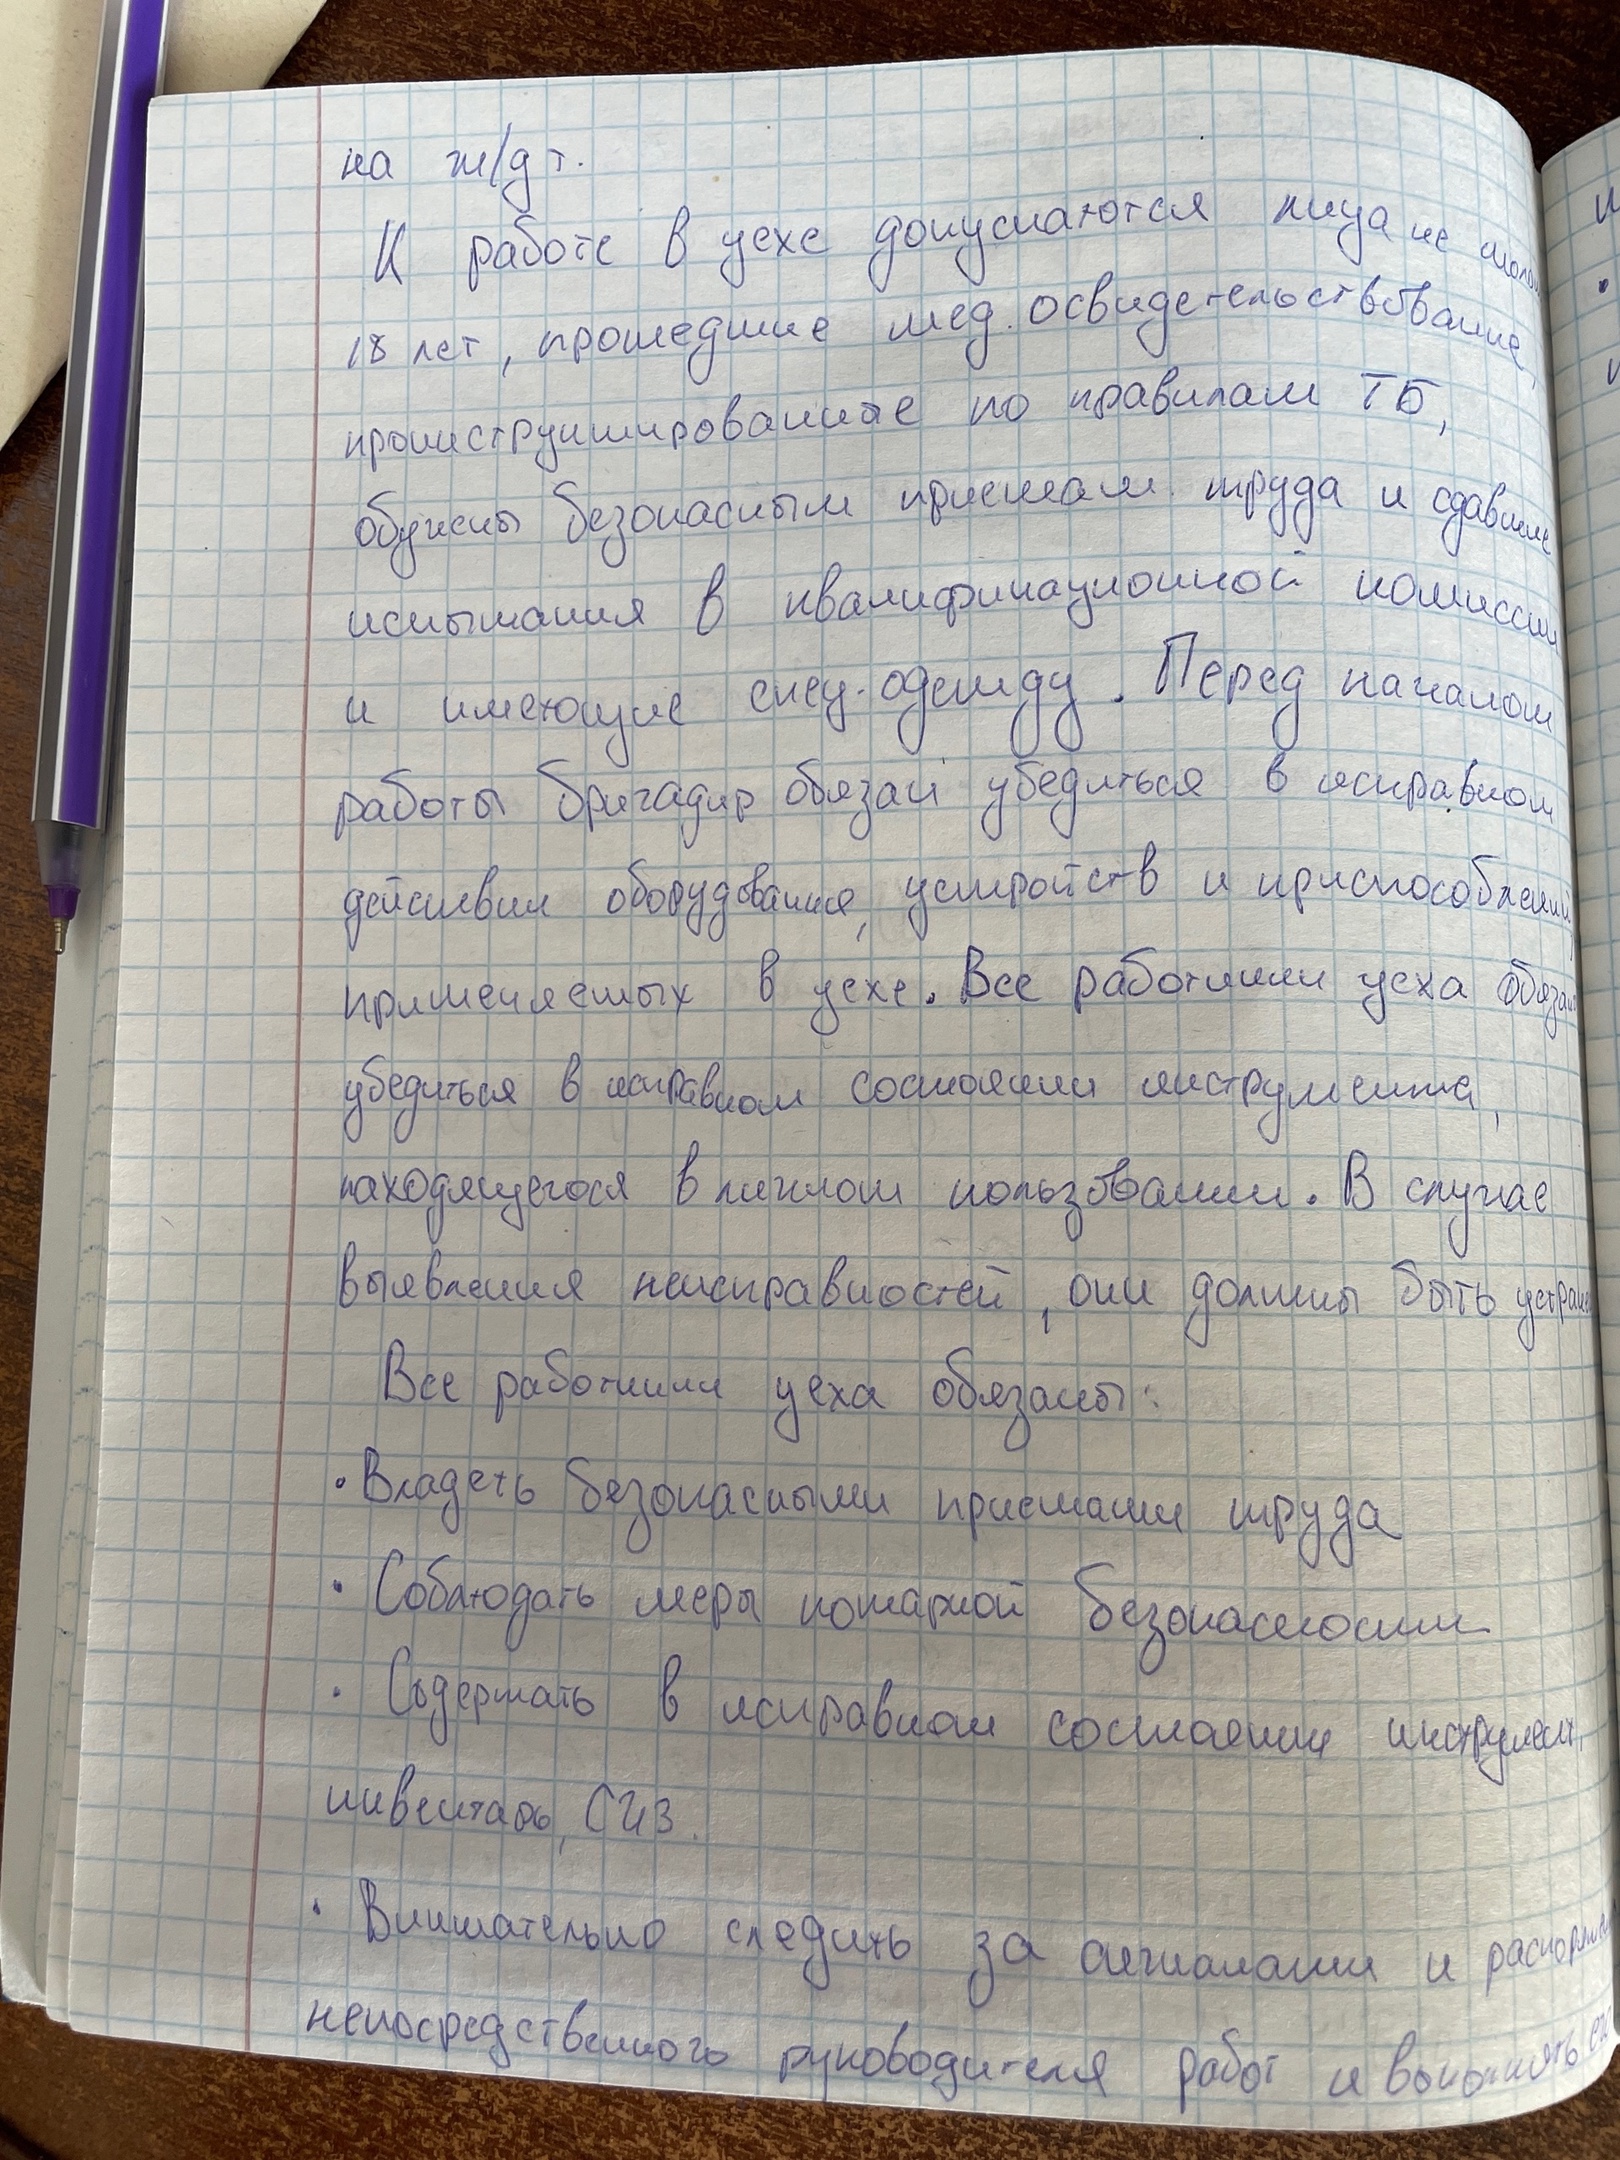 на ж/д т.
К работе в цехе допускаются лица не
18 лет, прошедшие мед. освидетельствование,
проинструктированные по правилам ТБ,
обучены безопасным приемам труда и сдавшие
испытания в квалификационной комиссии
и имеющие спец.одежду. Перед началом
работы бригадир обязан убедиться в исправном
действии оборудования, устройств и приспособлений,
применяемых в цехе. Все работники цеха
убедиться в исправном состоянии инструмента,
находящегося в личном пользовании. В случае
выявления неисправностей, они должны быть
Все работники цеха обязаны:
• Владеть безопасными приемами труда
• Соблюдать меры пожарной безопасности
• Содержать в исправном состоянии инструмент,
инвентарь, СИЗ.
• Внимательно следить за сигналами и
непосредственного руководителя работ и выполнять